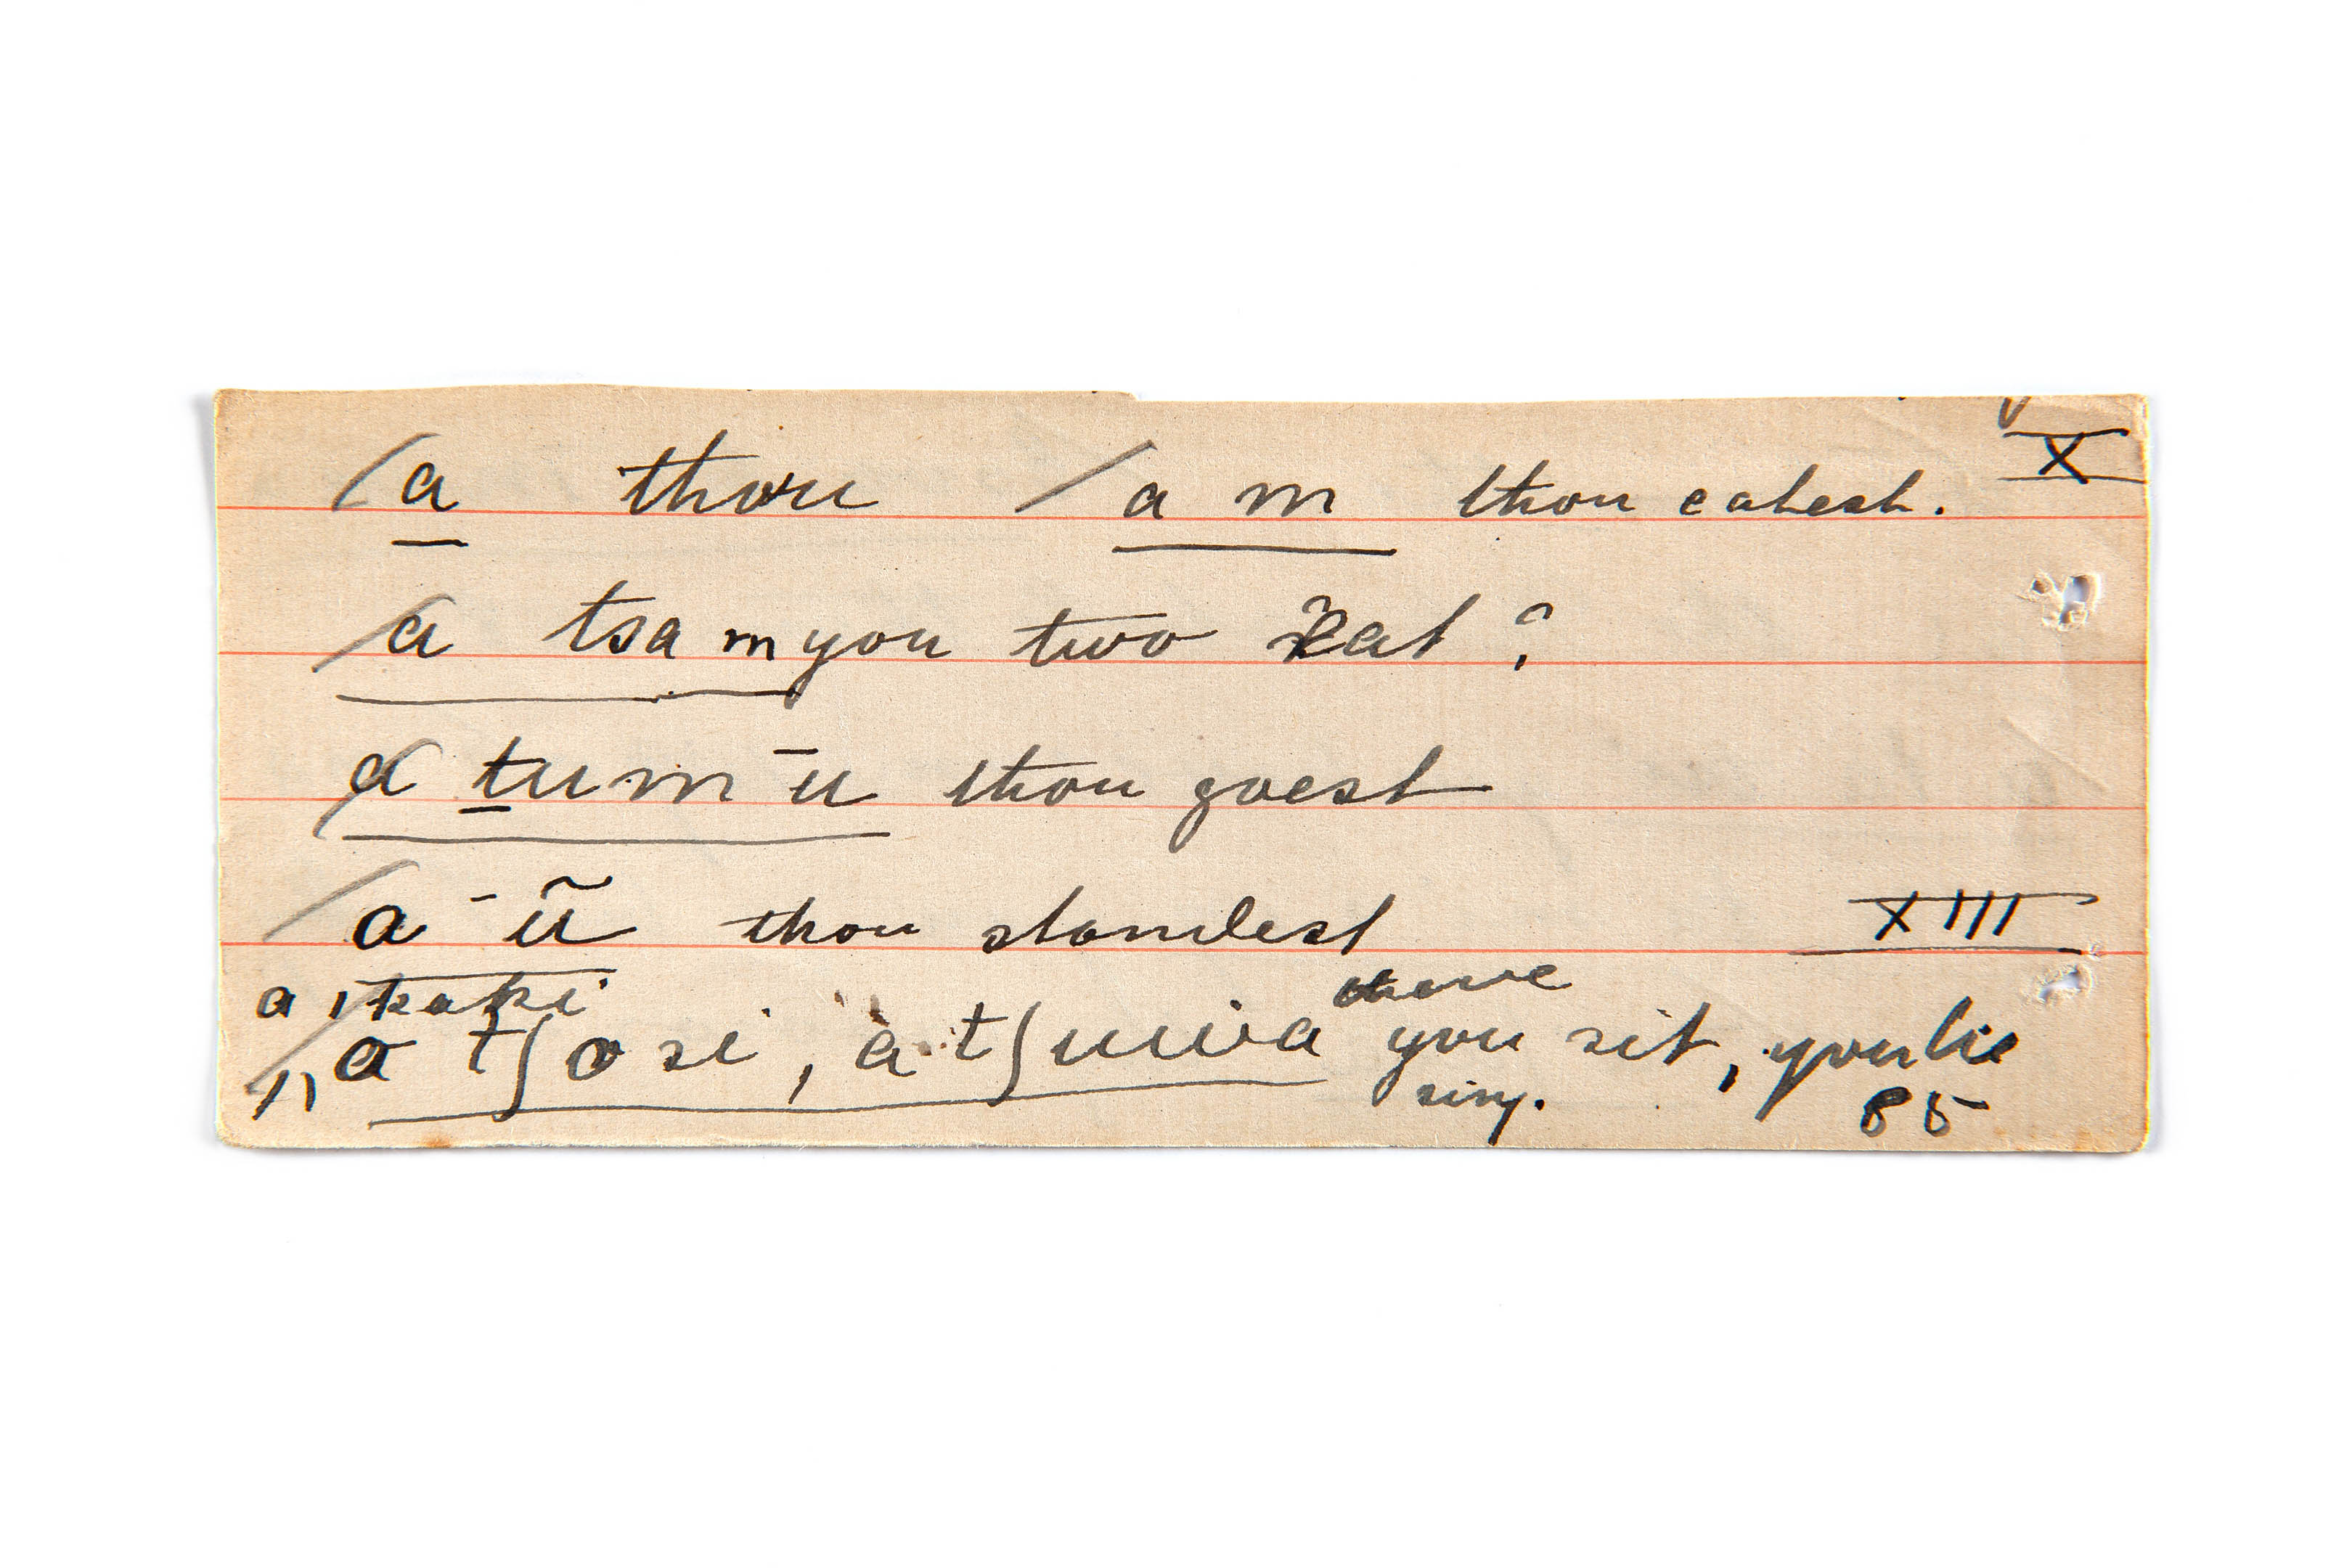 /a thou /a m thou eatest. X
/a tsa m you two eat ?
/a ṯu m ū thou goest
/a - ũ thou standest XIII
a , kaki
there
/a tʃo si , a tʃuwa you sit, you lie
sing. 85